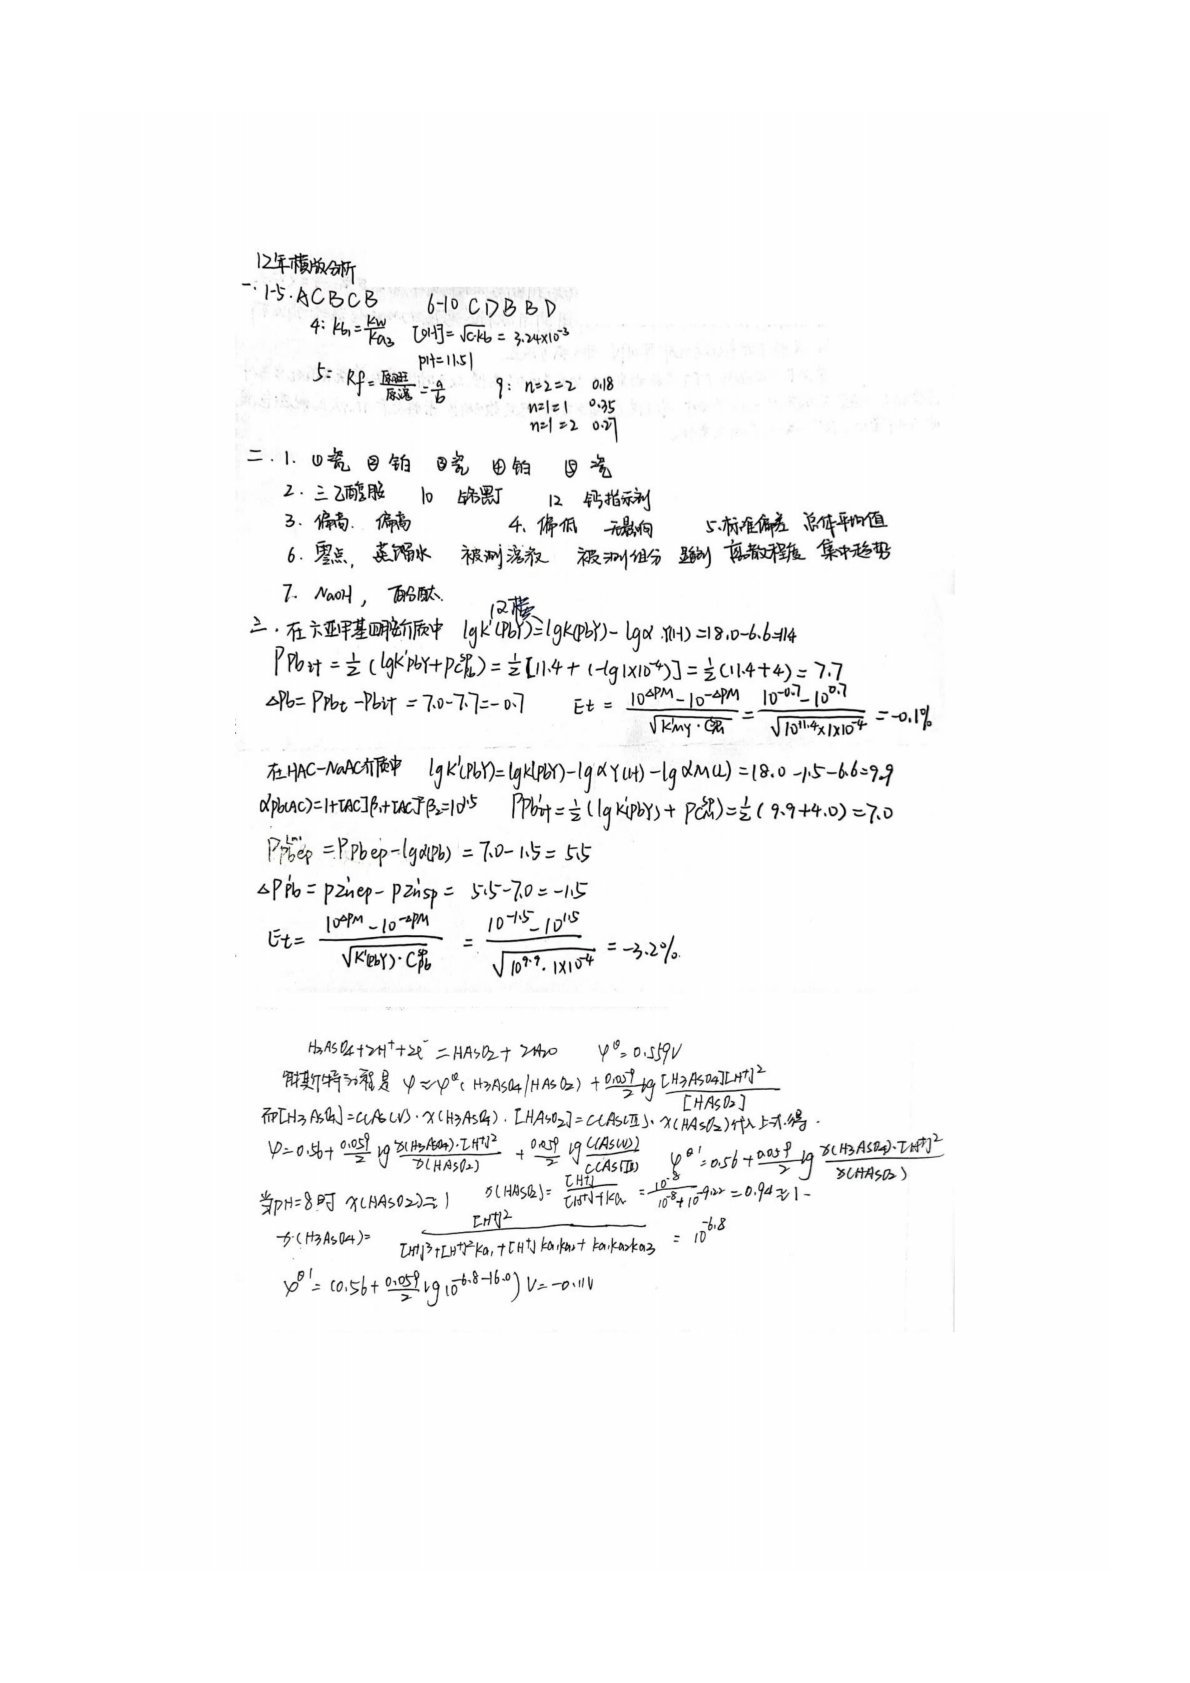 12年模版分析
一. 1-5. ACBCB 6-10 CDBBD
4: Kb₁=Kw/Ka₃ [OH⁻]=√c·Kb = 3.24×10⁻³
pH=11.51
5: Rf = = a/b 9: n=2=2 0.18
n=1=1 0.35
n=1=2 0.27
二. 1. ①瓷 ②铂 ③瓷 ④铂 ⑤瓷
2. 三乙醇胺 10 铬黑T 12 钙指示剂
3. 偏高. 偏高 4. 偏低 无影响 5. 标准偏差 总体平均值
6. 零点, 蒸馏水 被测溶液 被测组分 离散程度 集中趋势
7. NaOH, 酚酞.
12模
三. 在六亚甲基四胺介质中 lgK'(PbY)=lgK(PbY)-lgα Y(H)=18.0-6.6=114
PPb计=½(lgK'PbY+PC^sp_Pb)=½[11.4+(-lg1×10⁻⁴)]=½(11.4+4)=7.7
△Pb=PPbt-Pb计=7.0-7.7=-0.7 Et=(10^△PM-10^-△PM)/√K'MY·C^sp_M=(10^-0.7-10^0.7)/√10^11.4×1×10⁻⁴=-0.1%
在HAC-NaAC介质中 lgK'(PbY)=lgK(PbY)-lgαY(H)-lgαM(L)=18.0-1.5-6.6=9.9
αPb(AC)=1+[AC]β₁+[AC]²β₂=10^1.5 PPb'计=½(lgK'(PbY)+PC^sp_M)=½(9.9+4.0)=7.0
PPb'ep=PPbep-lgα(Pb)=7.0-1.5=5.5
△PPb'=PZn'ep-PZn'sp=5.5-7.0=-1.5
Et=(10^△PM-10^-△PM)/√K'(PbY)·C^sp_Pb=(10^-1.5-10^1.5)/√10^9.9·1×10⁻⁴=-3.2%.
H₃AsO₄+2H⁺+2e⁻=HAsO₂+2H₂O φ^θ=0.559V
能斯特方程是 φ=φ^θ(H₃AsO₄/HAsO₂)+0.059/2 lg [H₃AsO₄][H⁺]²/[HAsO₂]
而[H₃AsO₄]=C(As(V))·x(H₃AsO₄). [HAsO₂]=C(As(Ⅲ))·x(HAsO₂)代入上式得.
φ=0.56+0.059/2 lg x(H₃AsO₄)·[H⁺]²/x(HAsO₂)+0.059/2 lg C(As(V))/C(As(Ⅲ)) φ^θ'=0.56+0.059/2 lg x(H₃AsO₄)·[H⁺]²/x(HAsO₂)
当pH=8时 x(HAsO₂)≈1 x(HAsO₂)=[H⁺]/([H⁺]+Ka)=10⁻⁸/(10⁻⁸+10^-9.22)=0.94≈1-
x(H₃AsO₄)=[H⁺]²/([H⁺]³+[H⁺]²Ka₁+[H⁺]Ka₁Ka₂+Ka₁Ka₂Ka₃)=10^-6.8
φ^θ'=(0.56+0.059/2 lg10^-6.8-16.0)V=-0.11V